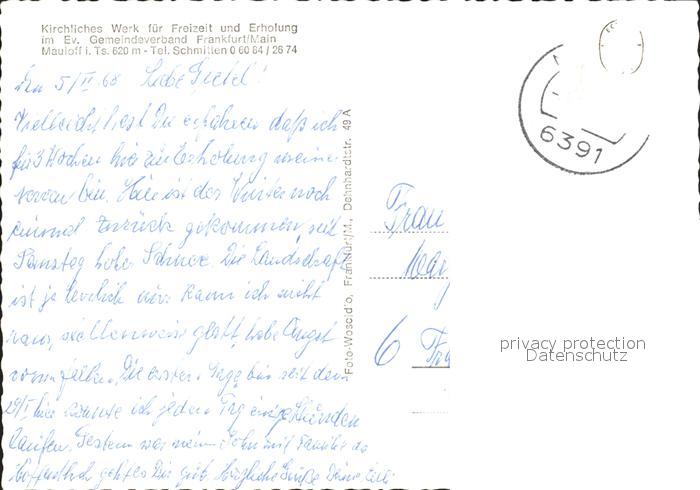 Kirchliches Werk für Freizeit und Erholung
im Ev. Gemeindeverband Frankfurt/Main
Mauloff i. Ts. 620 m - Tel. Schmitten 0 60 84 / 26 74
Den 5/ 68 Liebe Gretel!
Vielleicht hast Du erfahren daß ich
für 3 Wochen hier zur Erholung meiner
Nerven bin. Hier ist der Winter noch
einmal zurück gekommen, seit
Samstag hoher Schnee. Die Landschaft
ist ja herrlich nur kann ich nicht
raus, stellenweise glatt, habe Angst
vorm fallen. Die ersten Tage bin seit dem
29/ hier konnte ich jeden Tag einige Stunden
laufen. Gestern war mein Sohn mit Familie da
hoffentlich geht es Dir gut. herzliche Grüße Deine
Foto-Woscidlo, Frankfurt/M., Dehnhardtstr. 49 A
6391
Frau
6
privacy protection
Datenschutz